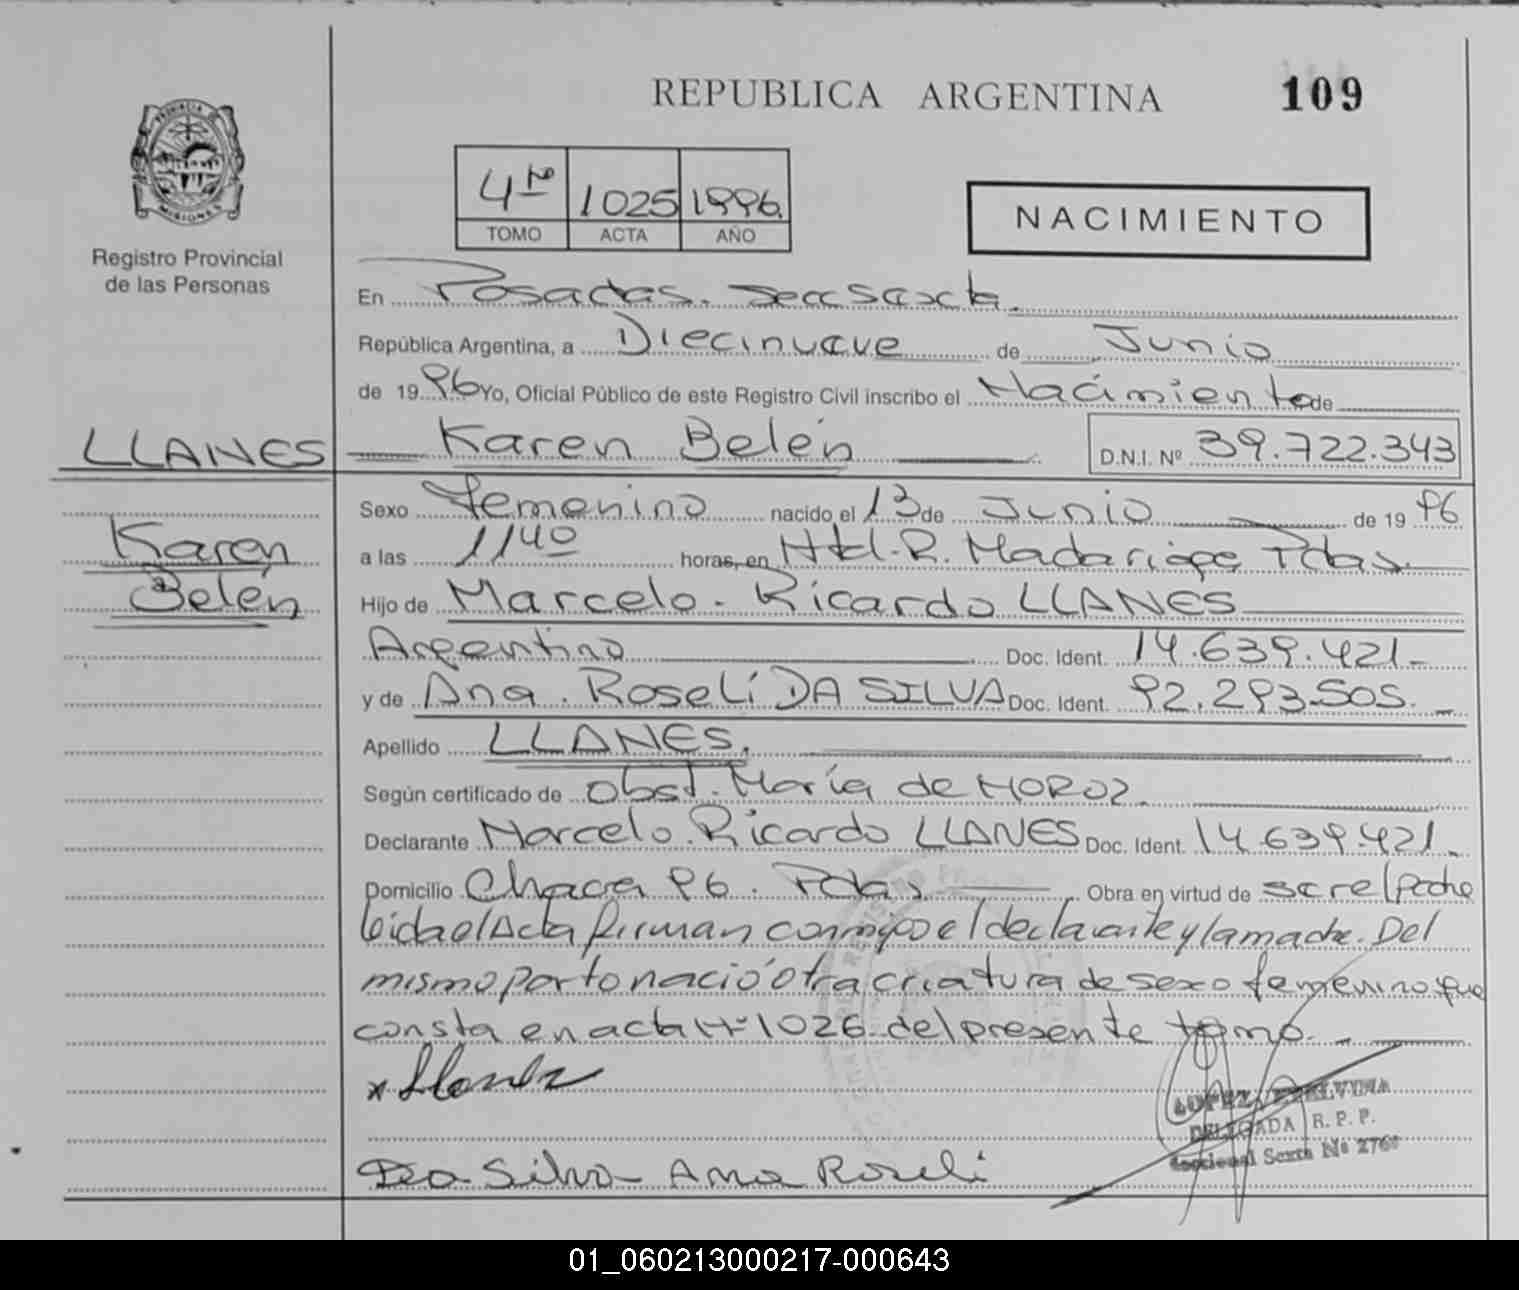 REPUBLICA ARGENTINA 109
PROVINCIA DE
MISIONES
Registro Provincial
de las Personas
4to 1025 1996
TOMO ACTA AÑO
NACIMIENTO
En Posadas. Secc Sexta.
República Argentina, a Diecinueve de Junio
de 1996 Yo, Oficial Público de este Registro Civil inscribo el Nacimiento de
LLANES Karen Belén D.N.I. Nº 39.722.343
Sexo Femenino nacido el 13 de Junio de 1996
Karen
Belén
a las 1140 horas, en Htal. R. Madariaga Pdas.
Hijo de Marcelo - Ricardo LLANES
Argentino Doc. Ident. 14.639.421-
y de Ana. Roselí DA SILVA Doc. Ident. 92.293.505. -
Apellido LLANES.
Según certificado de obst. María de MOROZ.
Declarante Marcelo. Ricardo LLANES Doc. Ident. 14.639.421.-
Domicilio Chacra 96. Pdas. Obra en virtud de ser el padre
leida el Acta firman conmigo el declarante y la madre. Del
mismo parto nació otra criatura de sexo femenino que
consta en acta Nº 1026 del presente tomo. -
x Llanes
LOPEZ, ETELVINA
DELEGADA R. P. P.
Seccional Sexta Nº 276
Da Silva Ana Roseli
01_060213000217-000643